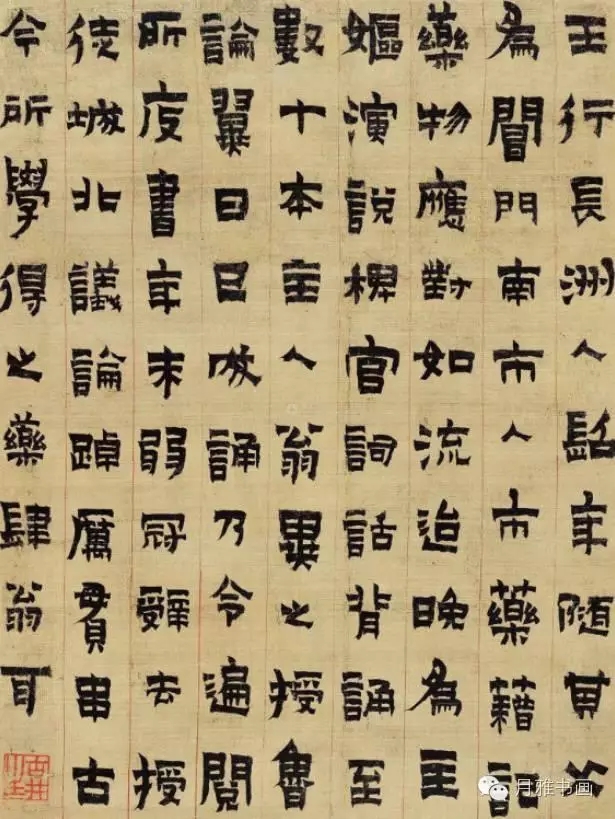 王行長洲人髫年隨其父
為閶門南市人市藥籍記
藥物應對如流迨晚為主
嫗演說稗官詞話背誦至
數十本主人翁異之授魯
論翼日已成誦乃令遍閱
所庋書年未弱冠辭去授
徒城北議論踔厲貫串古
今所學得之藥肆翁耳
月雅书画